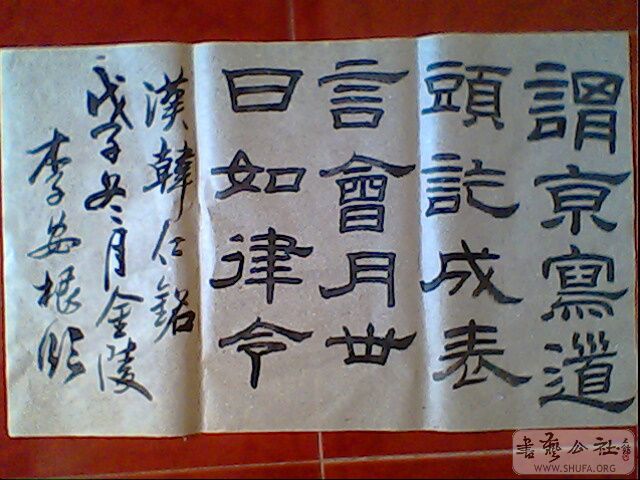 謂京寫道
頭訖成表
言會月卅
日如律令
漢韓仁銘
戊子冬二月金陵
李根臨
書藝公社
WWW.SHUFA.ORG